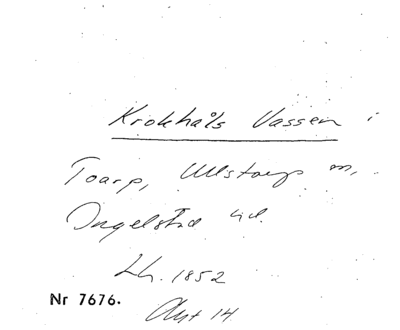 Krokhåls Vassen i
Toarp, Ullstorps m,
Ingelstad hd.
Lh. 1852
Nr 7676.
Akt 14